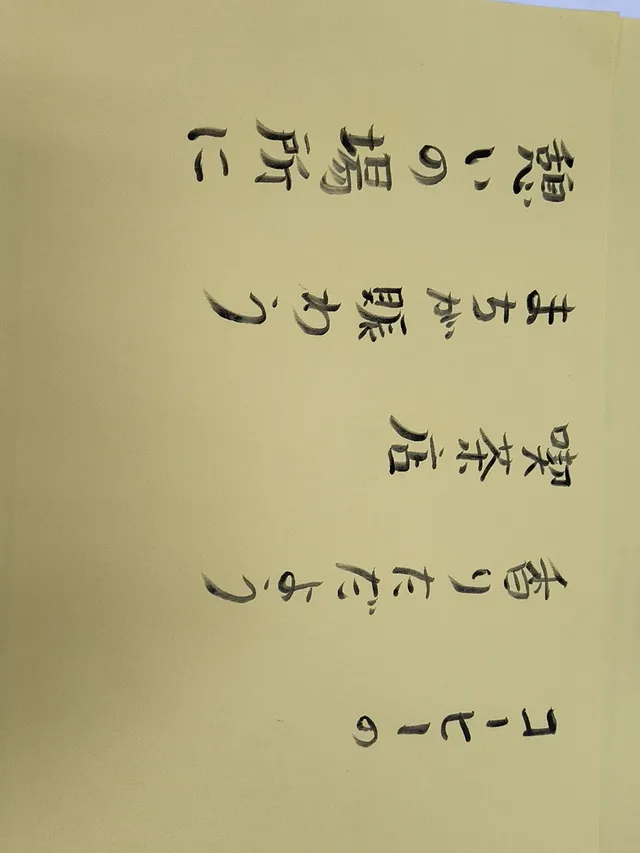 コーヒーの
香りただよう
喫茶店
まちが賑わう
憩いの場所に